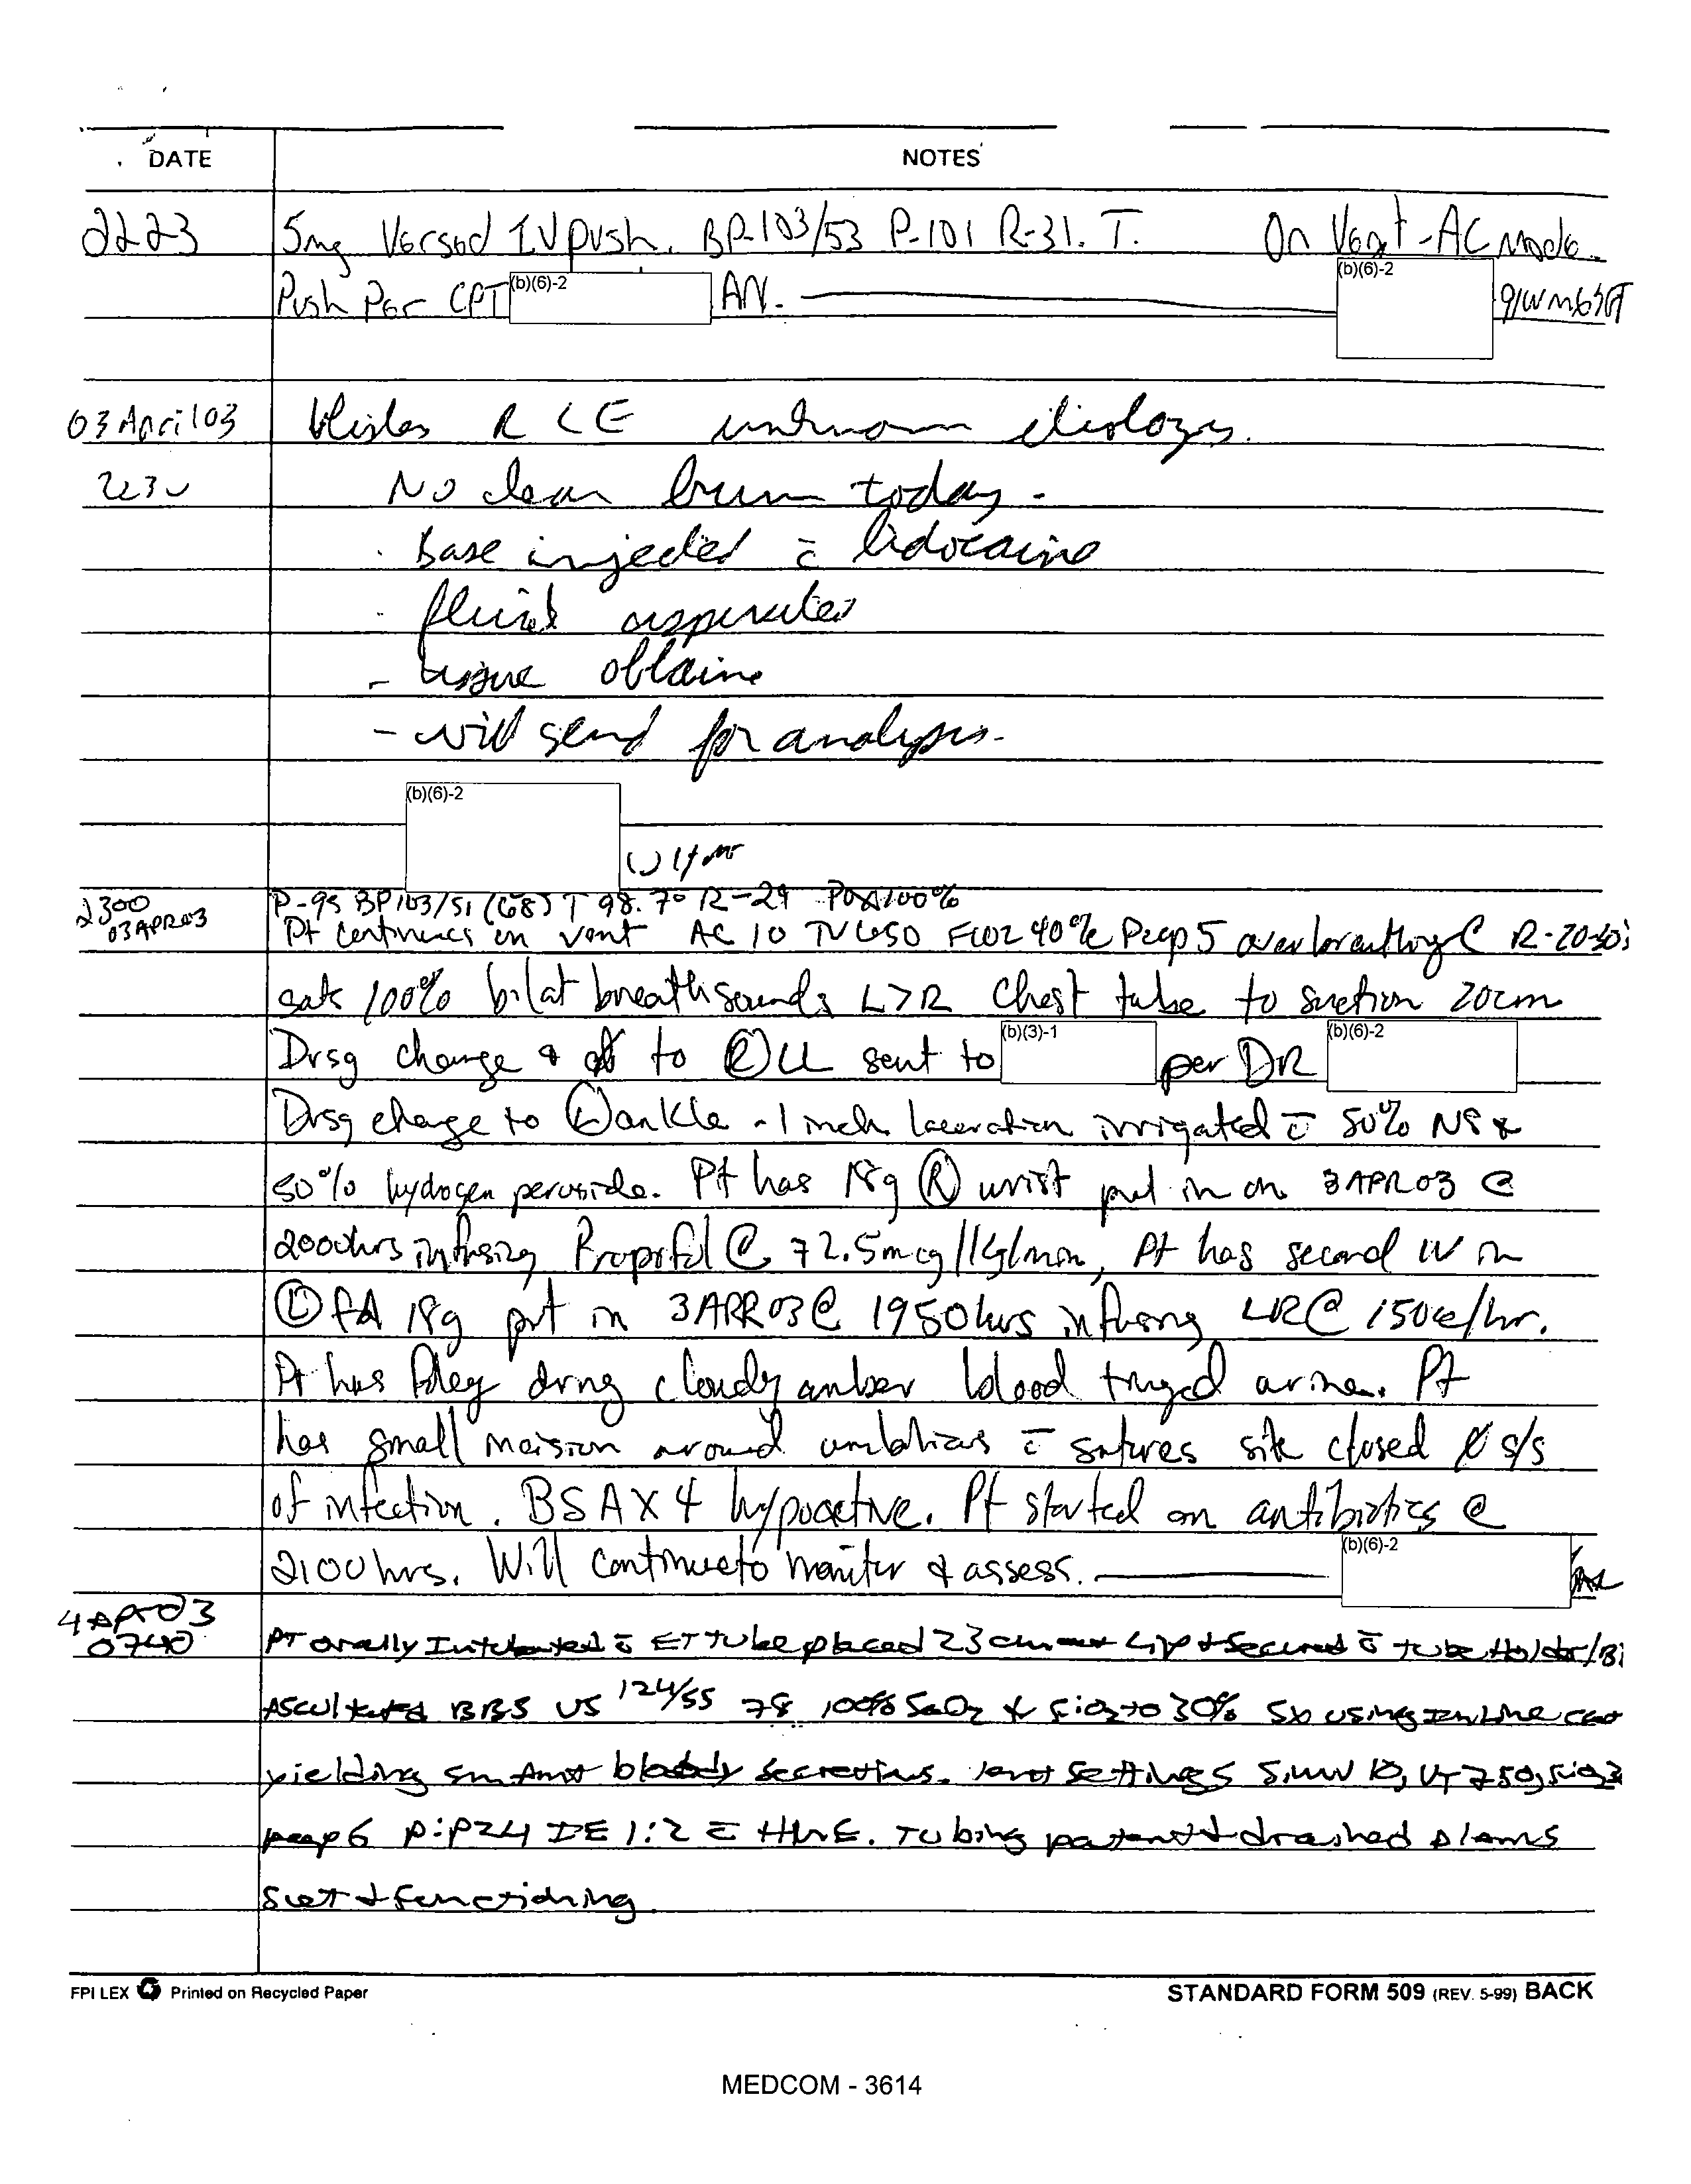 DATE NOTES
2223 5mg Versed IV push. BP-103/53 P-101 R-31. T. On Vent-AC Mode.
Push Per CPT (b)(6)-2 AN. (b)(6)-2 91WM6
03 April 03 blister R LE unknown etiology.
2230 No clear today -
Base injected c̄ lidocaine
fluid aspirated
- tissue obtained
- will send for analysis.
(b)(6)-2
2300 P-95 BP 103/51 (68) T 98.7° R-29 POX 100%
03APR03 Pt continues on vent AC 10 TV 650 FIO2 40% Peep 5 overbreathing R-20-30's
sats 100% bilat breath sounds L>R Chest tube to suction 20cm
Drsg change to Ⓡ sent to (b)(3)-1 per DR (b)(6)-2
Drsg change to ankle - 1 inch laceration irrigated c̄ 50% NS &
50% hydrogen peroxide. Pt has 18g Ⓡ wrist put in on 3APR03 @
2000hrs infusing Propofol @ 72.5mcg/kg/min, Pt has second IV in
Ⓛ FA 18g put in 3APR03 @ 1950hrs infusing LR @ 150cc/hr.
Pt has Foley drng cloudy amber blood tinged urine. Pt
has small incision around umbilicus c̄ sutures site closed Ø s/s
of infection. BSAX4 hypoactive. Pt started on antibiotics @
2100hrs. Will continue to monitor & assess. (b)(6)-2
4APR03
0740 PT orally Intubated c̄ ET tube placed 23cm Lip & Secured c̄ tube Holder/Bi
Ascultated BBS VS 124/55 78 100% SaO2 ↓ FiO2 to 30% Sx using InLine cath
yielding sm Amt bloody secretions. Vent Settings Simv 10, VT 750, FiO2
peep 6 PiP24 IE 1:2 c̄ HME. Tubing patent & drained Alarms
Set & Functioning
FPI LEX Printed on Recycled Paper STANDARD FORM 509 (REV. 5-99) BACK
MEDCOM - 3614